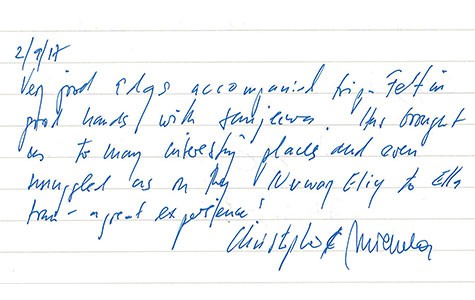 2/9/17
Very good Edgs accompanied trip. Felt in
good hands with Sanjeewa. He brought
us to many interesting places and even
smuggled us on the Nuwara Eliy to Ella
train - a great experience!
Christoph &